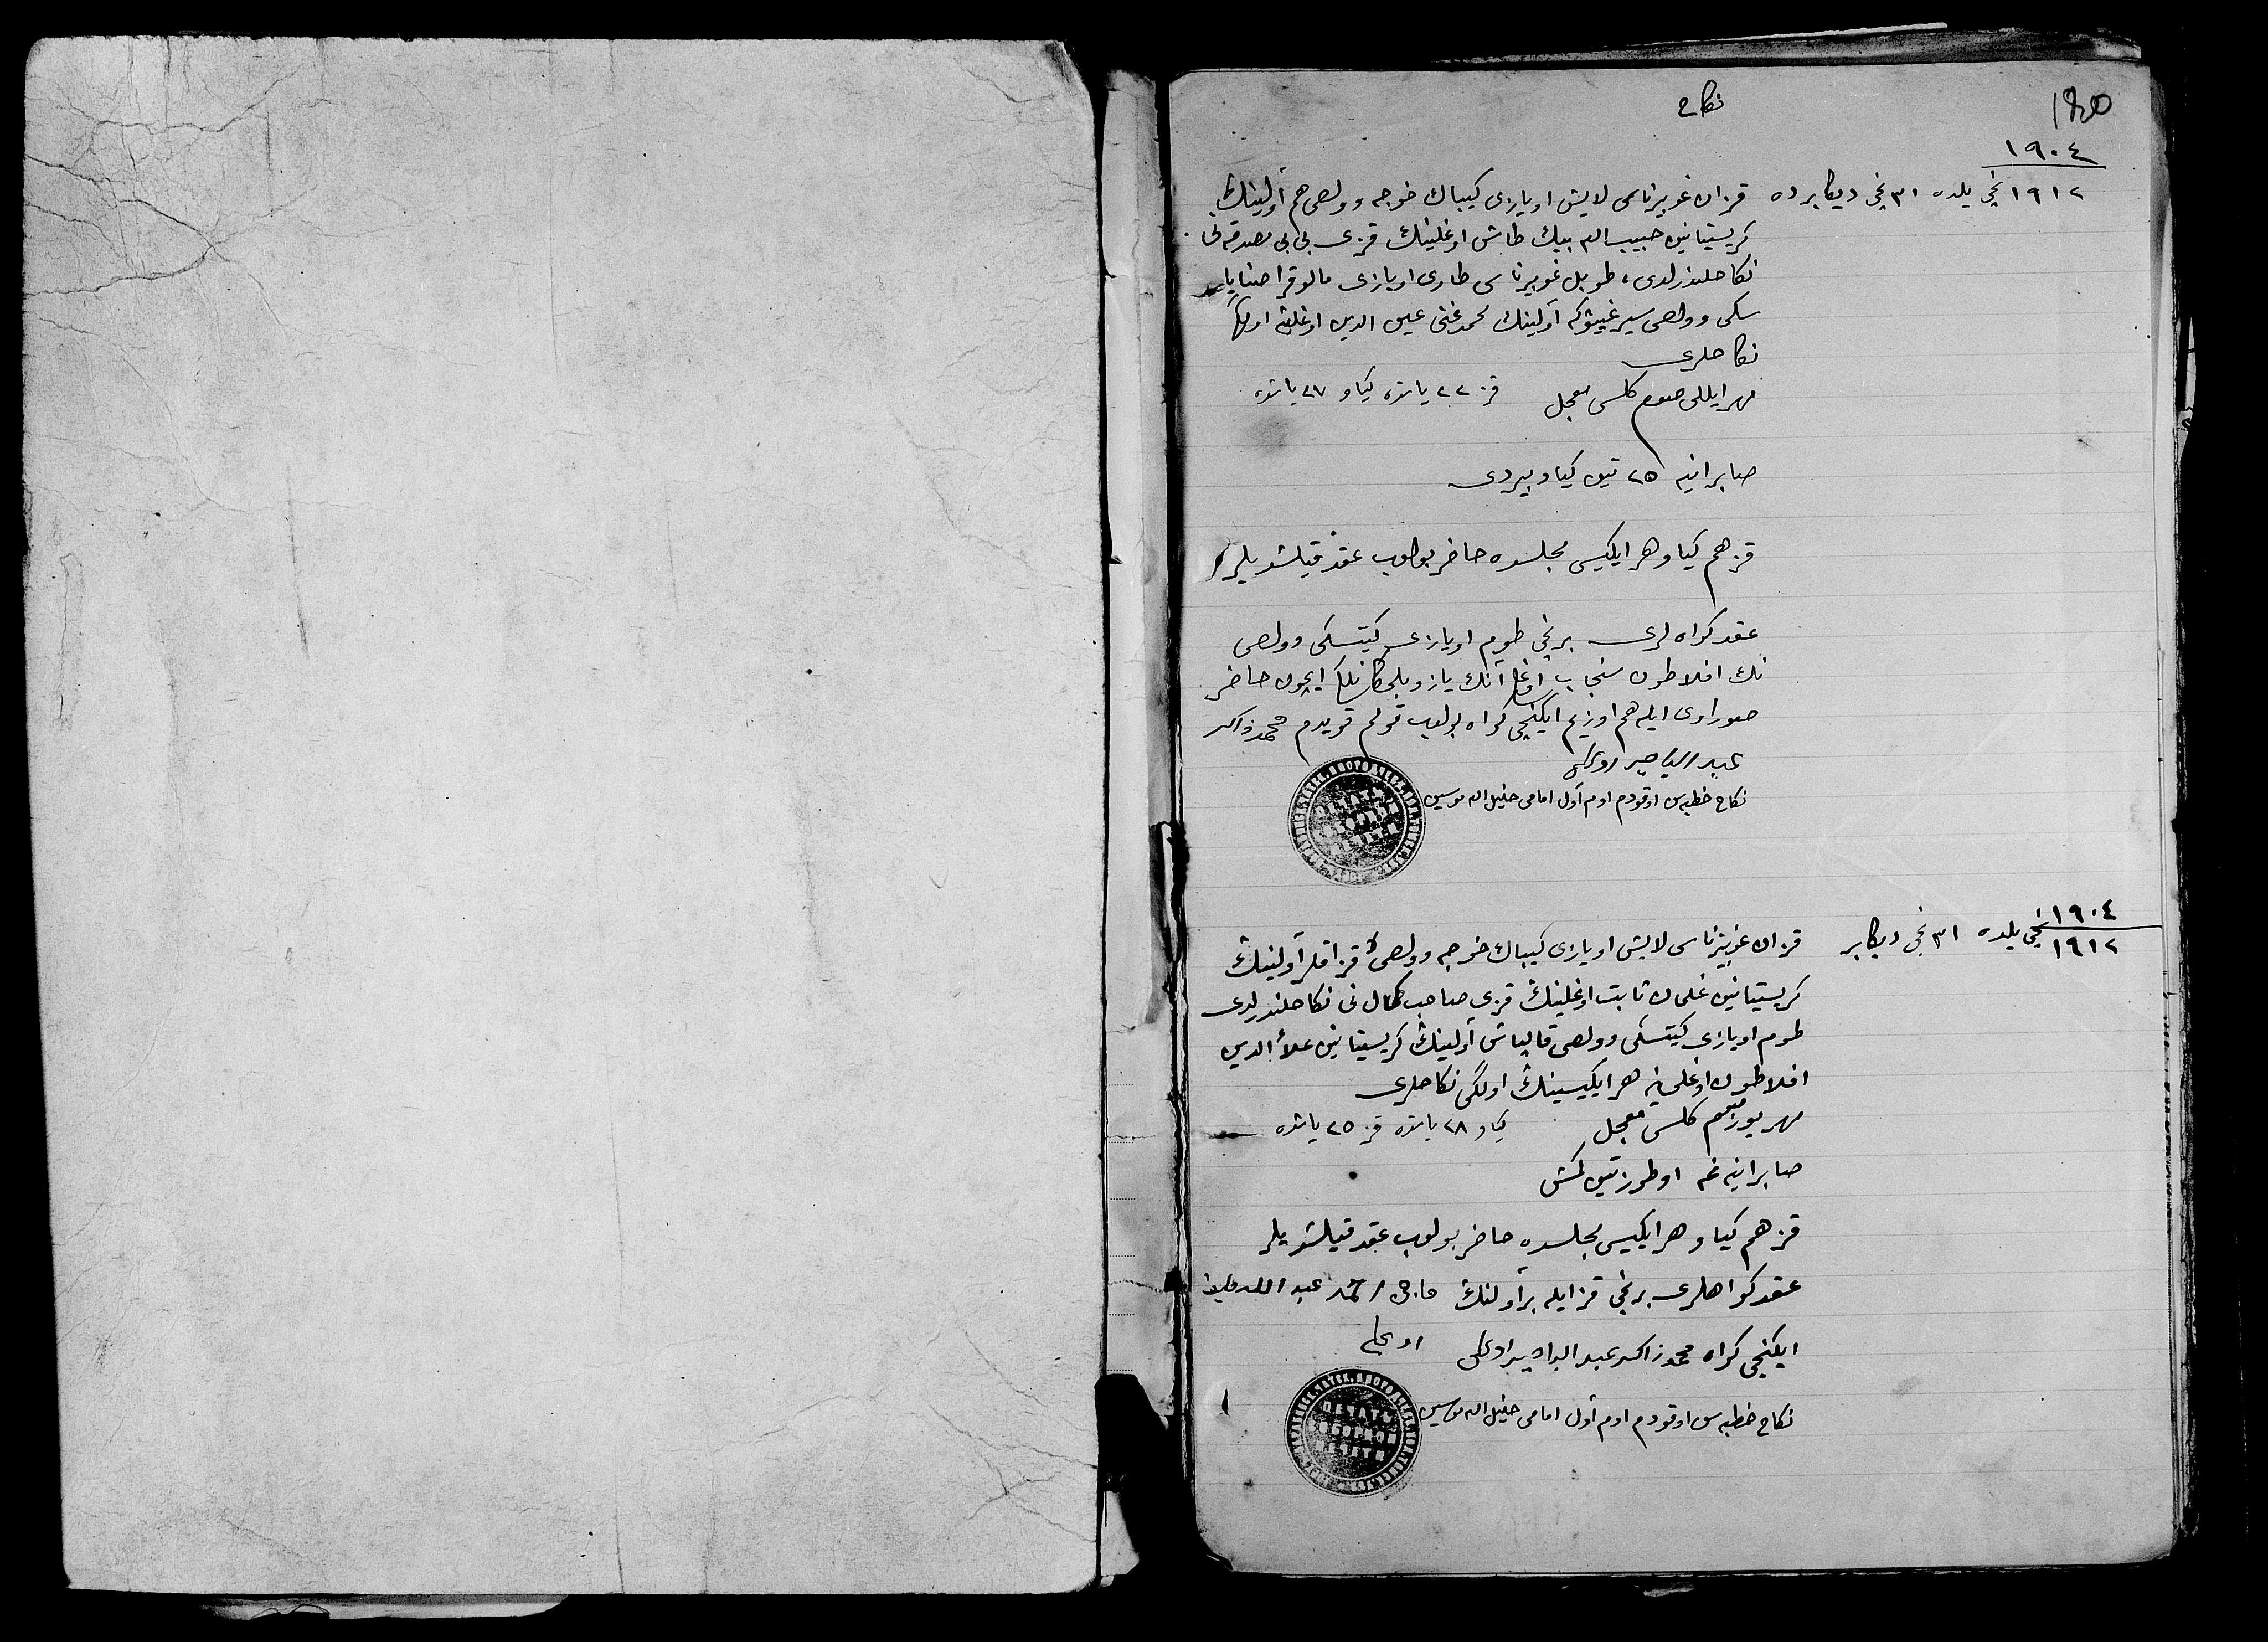 نكاح
١٩٠٤
١٩١٢ نچی یلده ٣١ نچی دیکابرده قزان غوبیرناسی لایش اویازی کیباك خوجه وولصی هم آولینڭ
کریستیانین حبیب الله بیك طاش اوغلینڭ قزی بی بی مصدقه نی
نکاحلندرلدی، طوبل غوبیرناسی طاری اویازی مالو قراصنایار
سکی وولصی آولینڭ محمد غنی عین الدین اوغلینه اولگی
نکاحلری
مهر ایللی صوم کلسی معجل قز ٢٢ یاشده کیاو ٢٧ یاشده
صابرانیه ٢٥ تین کیاو بیردی
قز هم کیاو هر ایکیسی مجلسده حاضر بولوب عقد قیلشدیلر
عقد کواه لری برنچی طوم اویازی کیتسکی وولصی
نڭ افلاطون سنجاب اوغلی آنڭ یازو بلمکانلكی ایچون حاضر
صوراوی ایله هم اوزم ایکنچی کواه بولوب قولم قویدم محمد ذاکر
عبد الباصیر اوغلی
نکاح خطبه سن اوقودم اوم آول امامی خلیل الله موسین
١٩٠٤
١٩١٢ نچی یلده ٣١ نچی دیکابر قزان غوبیرناسی لایش اویازی کیباك خوجه وولصی قزاقلر آولینڭ
کریستیانین غلمان ثابت اوغلینڭ قزی صاحب کمال نی نکاحلندرلدی
طوم اویازی کیتسکی وولصی قالپاش آولینڭ کریستیانین علاء الدین
افلاطون اوغلی نه هر ایکیسینڭ اولگی نکاحلری
مهر یوز صوم کلسی معجل کیاو ٢٨ یاشده قز ٢٥ یاشده
صابرانیه غه اوطوز تین کمش
قز هم کیاو هر ایکیسی مجلسده حاضر بولوب عقد قیلشدیلر
عقد کواهلری برنچی قز ایله بر آولنڭ احمد عبد الله
اوغلی
ایکنچی کواه محمد ذاکر عبد الباصیر اوغلی
نکاح خطبه سن اوقودم اوم آول امامی خلیل الله موسین